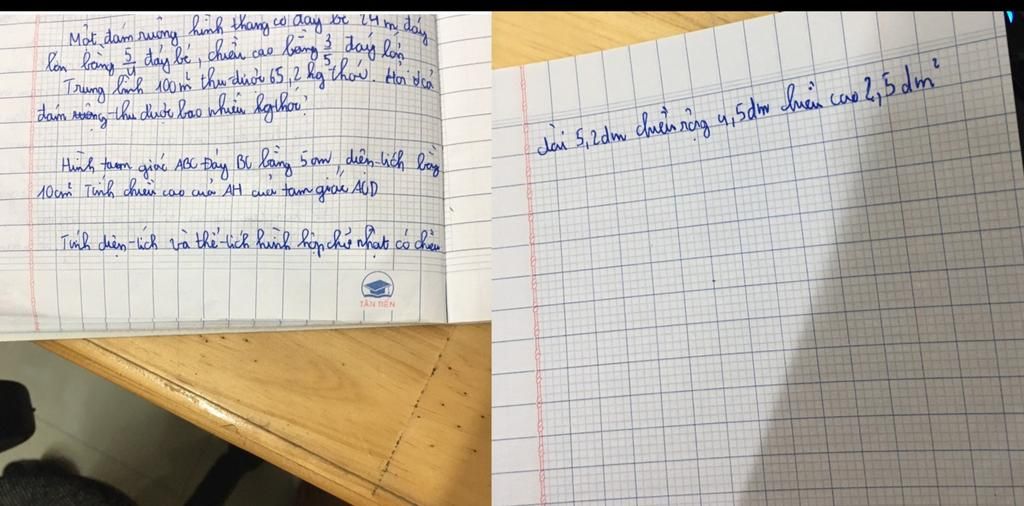 Một đám ruộng hình thang có đáy bé 24 m, đáy
lớn bằng 5/4 đáy bé, chiều cao bằng 3/5 đáy lớn
Trung bình 100m² thu được 65,2 kg thóc. Hỏi cả
đám ruộng thu được bao nhiêu kg thóc?
Hình tam giác ABC Đáy BC bằng 5cm diện tích bằng
10cm² Tính chiều cao của AH của tam giác
Tính diện tích và thể tích hình hộp chữ nhật có chiều
TÂN TIẾN
dài 5,2dm chiều rộng 4,5dm chiều cao 2,5dm²